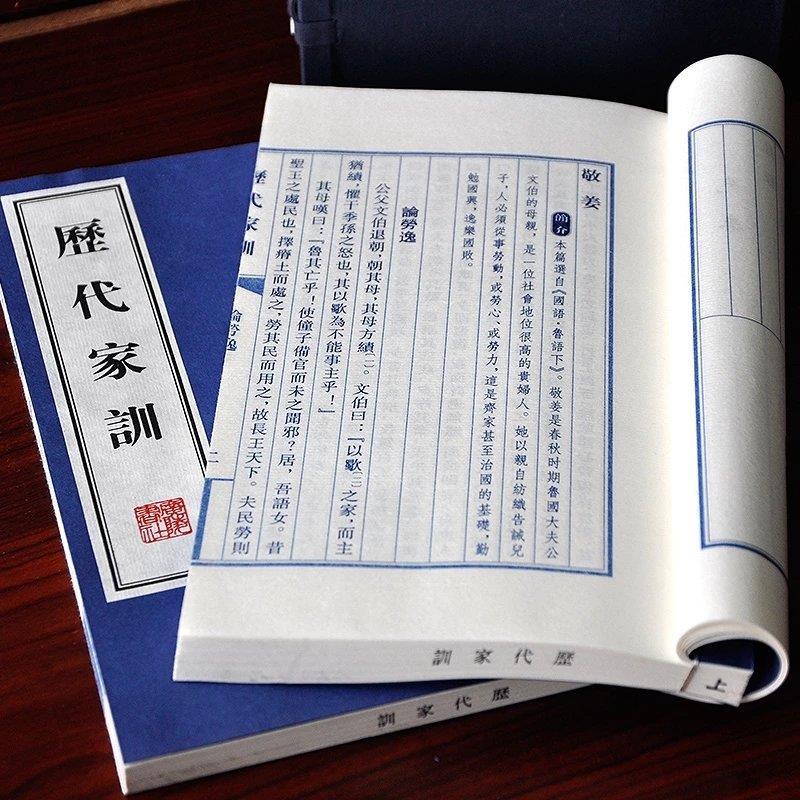 歷代家訓
廣陵書社
敬姜
簡介 本篇選自《國語·魯語下》。敬姜是春秋時期魯國大夫公
文伯的母親，是一位社會地位很高的貴婦人。她以親自紡織告誡兒
子，人必須從事勞動，或勞心、或勞力，這是齊家甚至治國的基礎，勤
勉國興，逸樂國敗。
論勞逸
公父文伯退朝，朝其母，其母方績〔一〕。文伯曰：『以歜〔二〕之家，而主
猶績，懼干季孫之怒也，其以歜為不能事主乎！』
其母嘆曰：『魯其亡乎！使僮子備官而未之聞邪？居，吾語女。昔
聖王之處民也，擇瘠土而處之，勞其民而用之，故長王天下。夫民勞則
歷代家訓
論勞逸
二
歷代家訓
上
歷代家訓